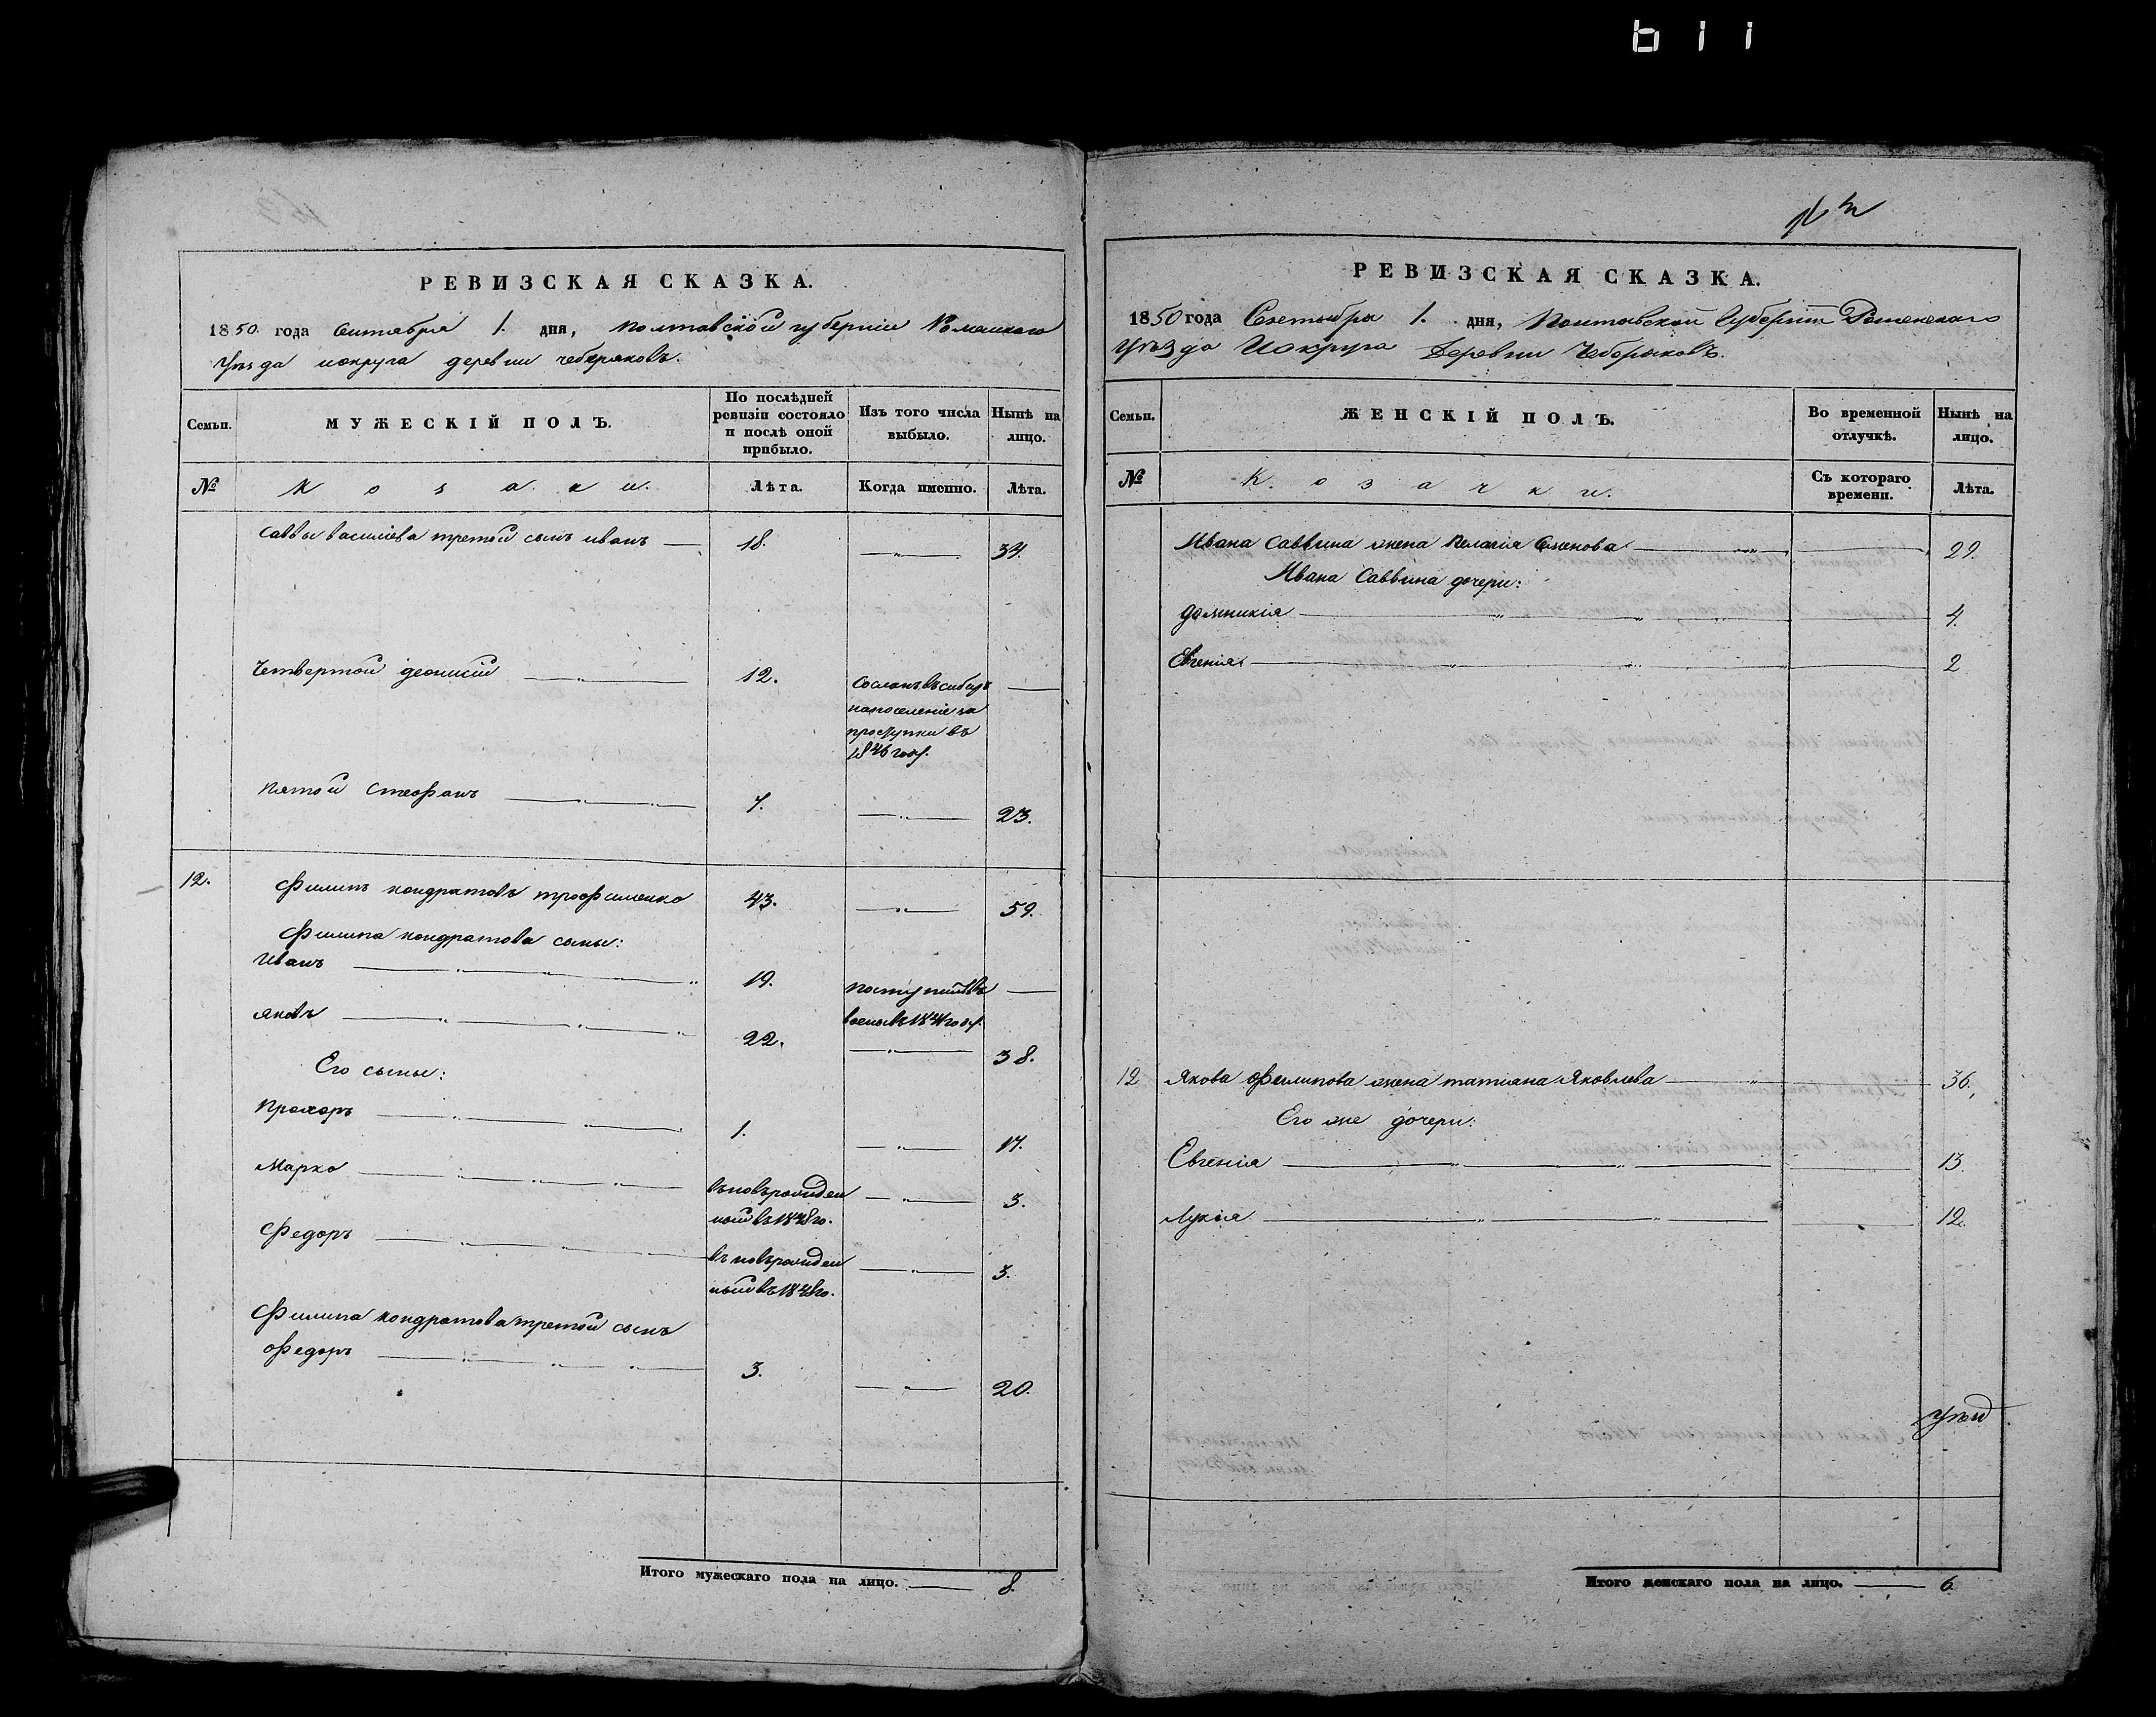 РЕВИЗСКАЯ СКАЗКА.
1850 года Октября 1. дня, полтавской губерніи Роменскаго
Уезда иокруга деревни чеберяковъ.
Семьи.
МУЖЕСКІЙ ПОЛЪ.
По послѣдней ревизіи состояло и послѣ оной прибыло.
Изъ того числа выбыло.
Нынѣ на лицо.
№
Козаки.
Лѣта.
Когда именно.
Лѣта.
Саввы василіева третой сынъ иванъ 18. 34.
Четвертой деонисій 12. Сосланъ въ сибирь
напоселеніе за
проступки въ
1846 году.
Пятой Стефанъ 7. 23.
12. Филипъ кондратовъ трофименко 43. 59.
Филипа кондратова сыны:
Иванъ 19. поступилъ въ
въ 184 году.
Яковъ 22. 38.
Его сыны:
Прохоръ 1. 17.
Марко вновърожден 3.
ный въ 1848 го.
Федоръ вновърожден 3.
ный въ 1848 го.
Филипа кондратова третой сынъ
Федоръ 3. 20.
Итого мужескаго пола на лицо. 8.
РЕВИЗСКАЯ СКАЗКА.
1850 года 1. дня, Полтавской Губерніи Роменскаго
Уѣзда Иокруга Деревни Чеберяковъ.
Семьи.
ЖЕНСКІЙ ПОЛЪ.
Во временной отлучкѣ.
Нынѣ на лицо.
№
Козачки.
Съ котораго времени.
Лѣта.
Ивана Саввина жена Пелагія Семенова 29.
Ивана Саввина дочери:
Домникія 4.
Евгенія 2
12 Якова Филипова жена татіана Яковлева 36.
Его же дочери:
Евгенія 13.
Лукія 12.
Итого женскаго пола на лицо. 6.